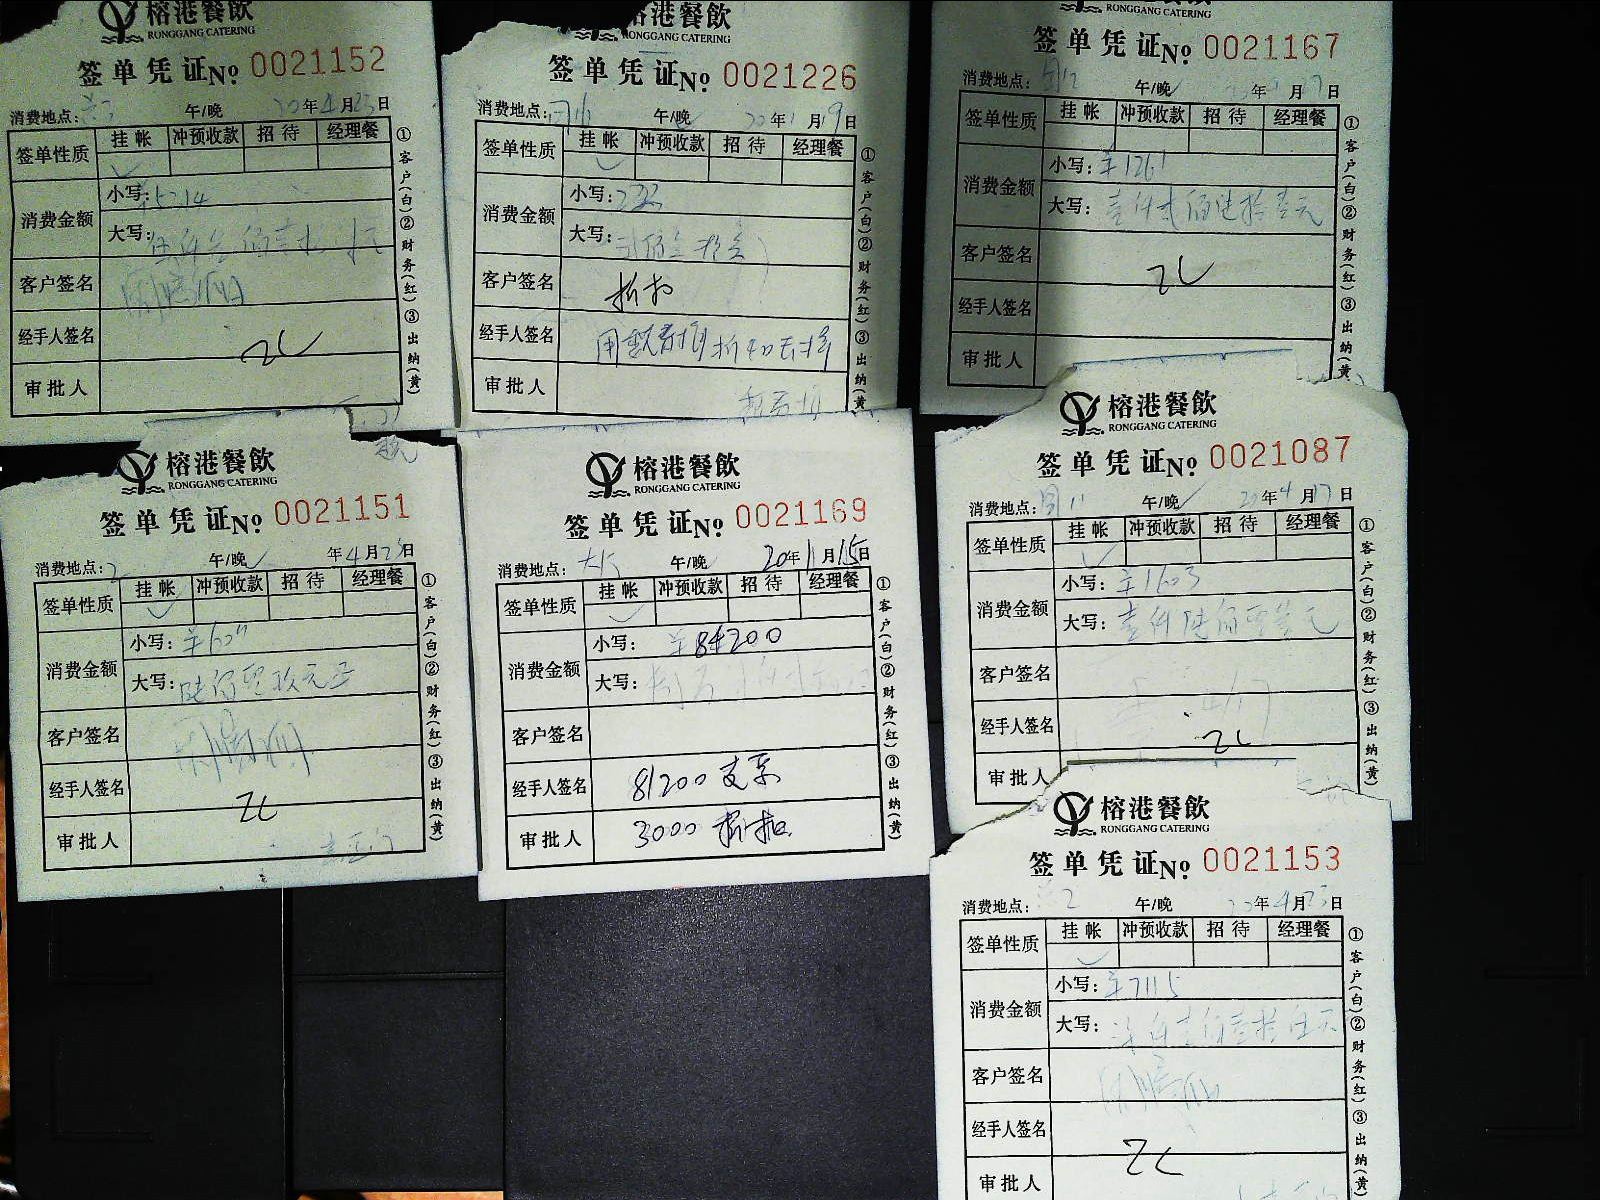 榕港餐飲
RONGGANG CATERING
签单凭证№ 0021152
消费地点: 午/晚 20年4月23日
签单性质 挂帐 冲预收款 招待 经理餐
消费金额 小写: ¥5214
大写:
客户签名
经手人签名
审批人
①客户(白)②财务(红)③出纳(黄)
港餐飲
RONGGANG CATERING
签单凭证№ 0021226
消费地点: 午/晚 20年1月19日
签单性质 挂帐 冲预收款 招待 经理餐
消费金额 小写:
大写:
客户签名 折扣
经手人签名
审批人
①客户(白)②财务(红)③出纳(黄)
RONGGANG CATERING
签单凭证№ 0021167
消费地点: 午/晚 年 月 日
签单性质 挂帐 冲预收款 招待 经理餐
消费金额 小写: ¥1261
大写: 壹仟贰佰陆拾壹元
客户签名
经手人签名
审批人
①客户(白)②财务(红)③出纳(黄)
榕港餐飲
RONGGANG CATERING
签单凭证№ 0021151
消费地点: 2 午/晚 年4月23日
签单性质 挂帐 冲预收款 招待 经理餐
消费金额 小写:
大写: 陆佰零玖元正
客户签名
经手人签名
审批人
①客户(白)②财务(红)③出纳(黄)
榕港餐飲
RONGGANG CATERING
签单凭证№ 0021169
消费地点: 大厅 午/晚 20年11月15日
签单性质 挂帐 冲预收款 招待 经理餐
消费金额 小写: ¥84200
大写:
客户签名
经手人签名 81200 支票
审批人 3000 折扣
①客户(白)②财务(红)③出纳(黄)
榕港餐飲
RONGGANG CATERING
签单凭证№ 0021087
消费地点: 午/晚 20年4月17日
签单性质 挂帐 冲预收款 招待 经理餐
消费金额 小写: ¥1603
大写: 壹仟陆佰零叁元
客户签名
经手人签名
审批人
①客户(白)②财务(红)③出纳(黄)
榕港餐飲
RONGGANG CATERING
签单凭证№ 0021153
消费地点: 2 午/晚 20年4月23日
签单性质 挂帐 冲预收款 招待 经理餐
消费金额 小写: ¥7115
大写: 柒仟壹佰壹拾伍元
客户签名
经手人签名
审批人
①客户(白)②财务(红)③出纳(黄)